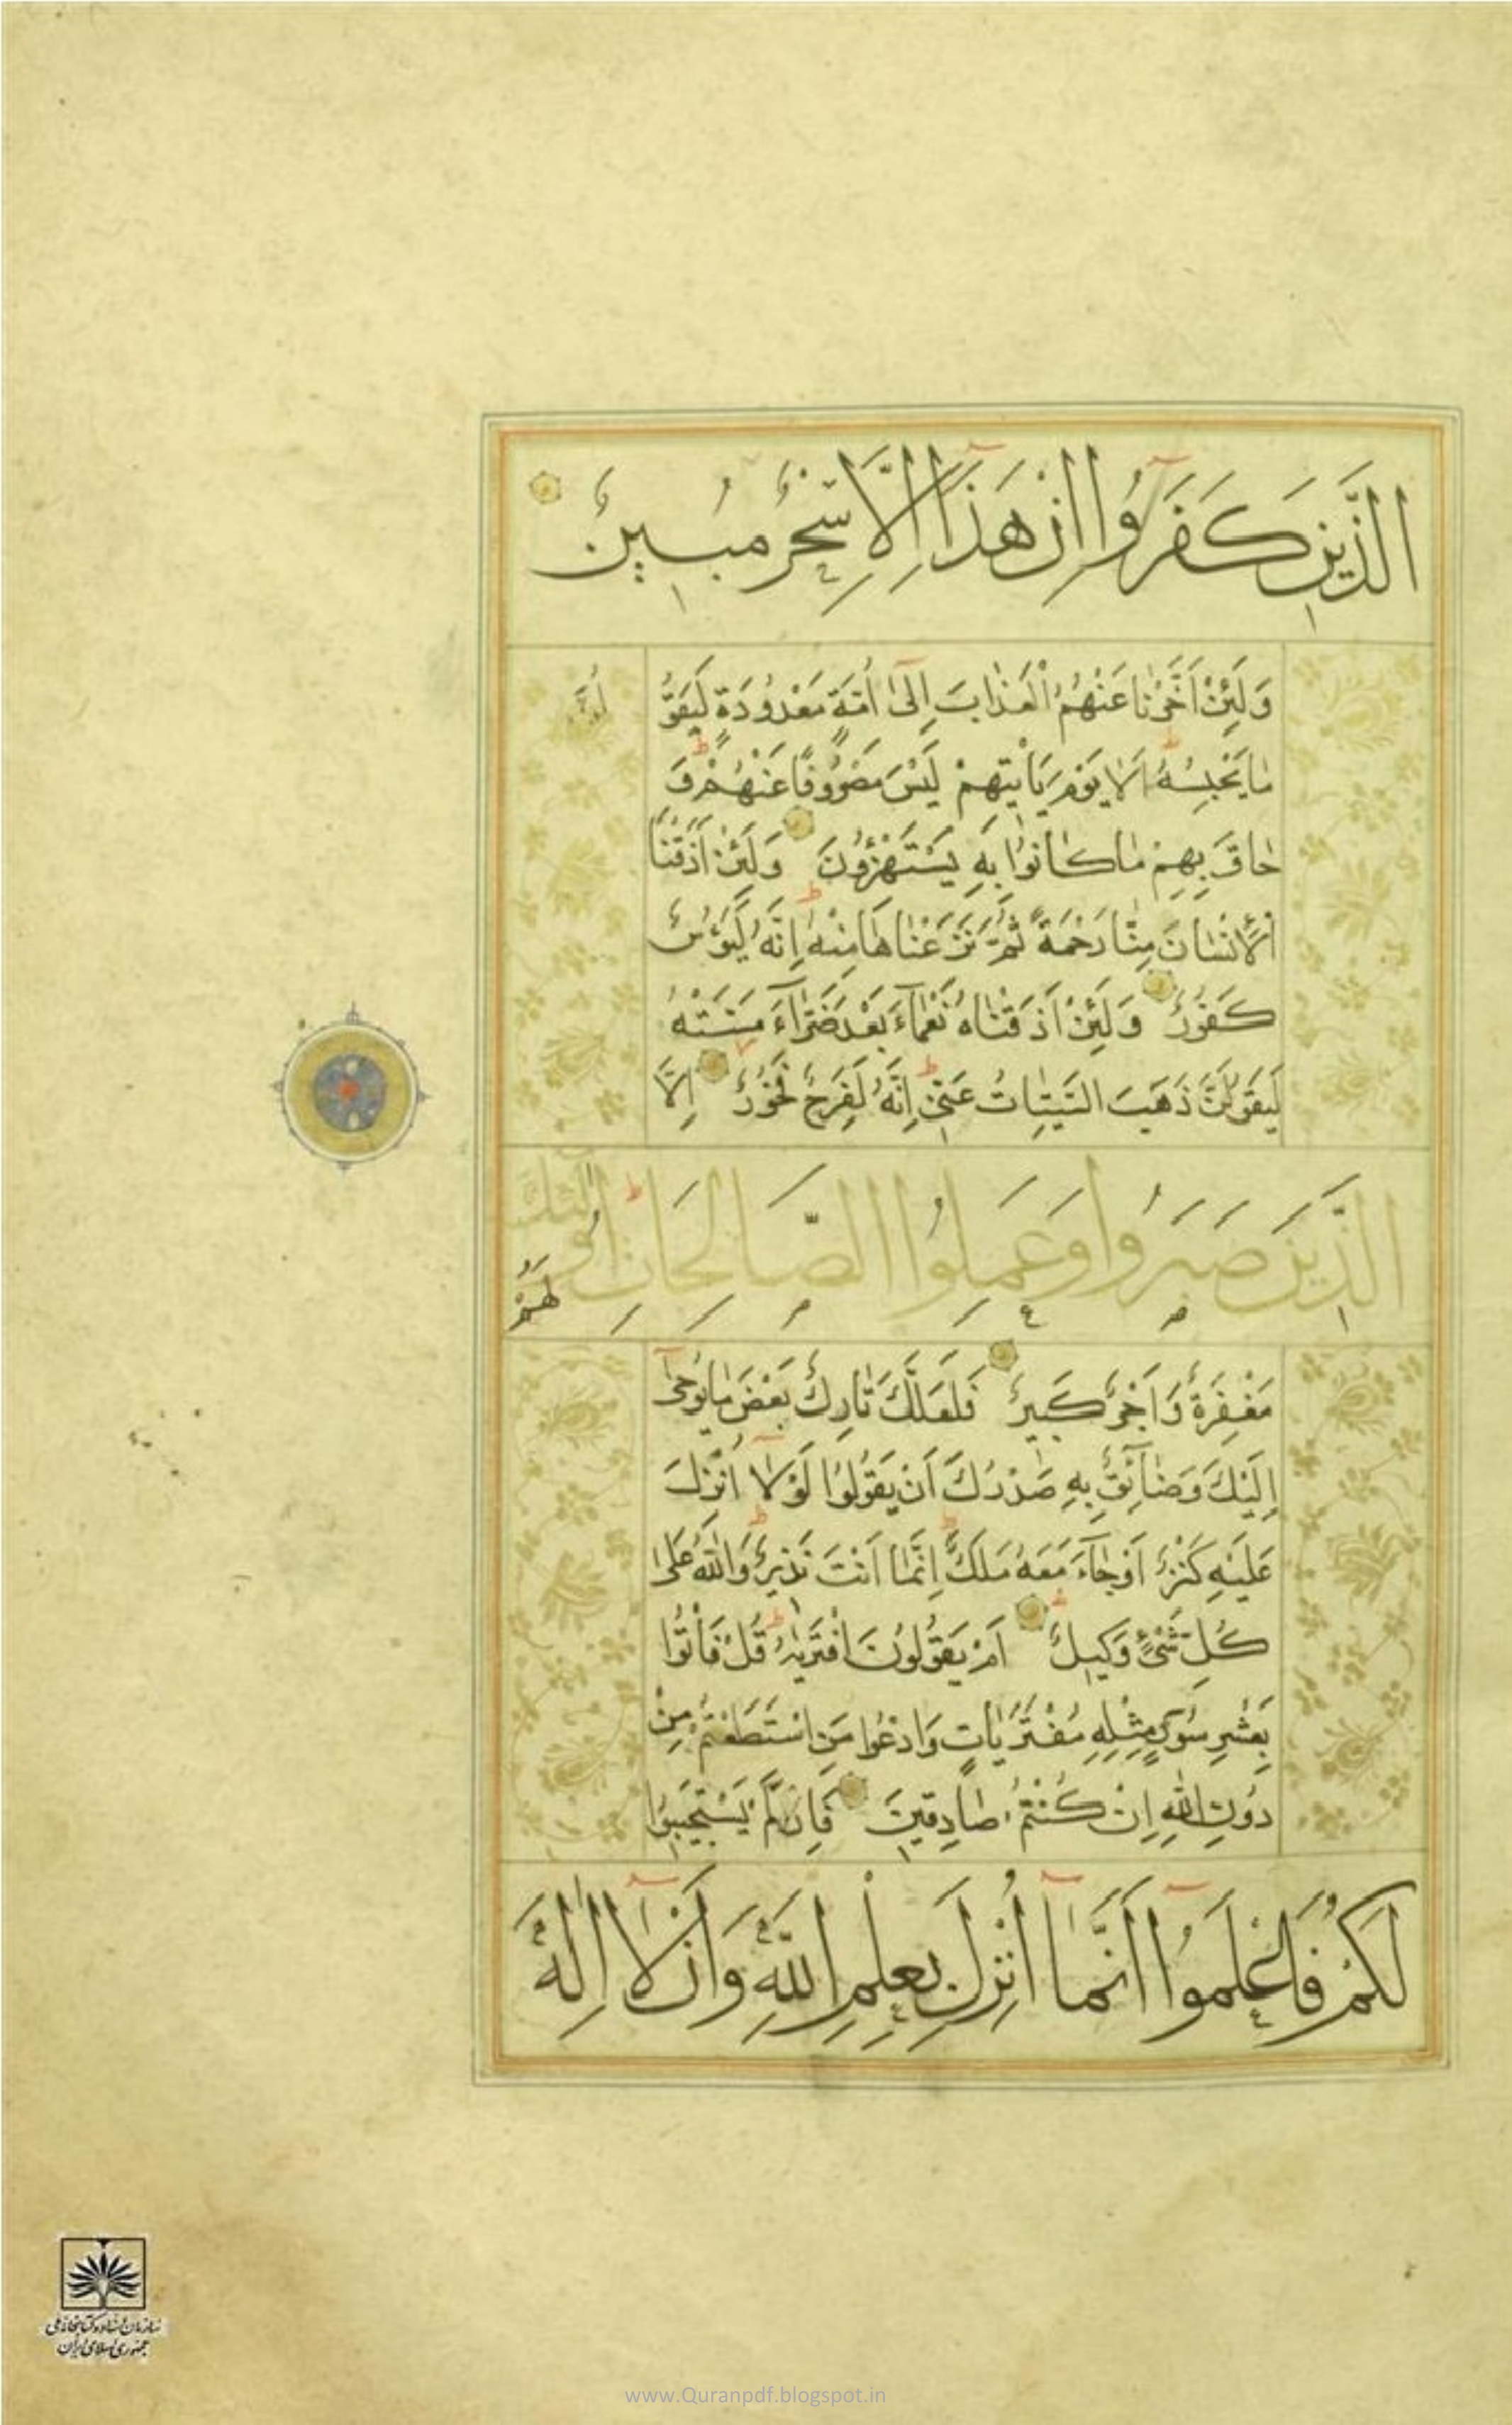 الَّذِينَ كَفَرُوا اِنْ هَذَا اِلَّا سِحْرٌ مُبِينٌ
وَلَئِنْ اَخَّرْنَا عَنْهُمُ الْعَذَابَ اِلَىٰ اُمَّةٍ مَعْدُودَةٍ لَيَقُو
لُنَّ
مَا يَحْبِسُهُ اَلَا يَوْمَ يَأْتِيهِمْ لَيْسَ مَصْرُوفًا عَنْهُمْ وَ
حَاقَ بِهِمْ مَا كَانُوا بِهِ يَسْتَهْزِؤُنَ وَلَئِنْ اَذَقْنَا
الْاِنْسَانَ مِنَّا رَحْمَةً ثُمَّ نَزَعْنَاهَا مِنْهُ اِنَّهُ لَيَؤُسٌ
كَفُورٌ وَلَئِنْ اَذَقْنَاهُ نَعْمَآءَ بَعْدَ ضَرَّآءَ مَسَّتْهُ
لَيَقُولَنَّ ذَهَبَ السَّيِّئَاتُ عَنِّي اِنَّهُ لَفَرِحٌ فَخُورٌ اِلَّا
الَّذِينَ صَبَرُوا وَعَمِلُوا الصَّالِحَاتِ اُولٰئِكَ لَهُمْ
مَغْفِرَةٌ وَاَجْرٌ كَبِيرٌ فَلَعَلَّكَ تَارِكٌ بَعْضَ مَا يُوحَىٰ
اِلَيْكَ وَضَآئِقٌ بِهِ صَدْرُكَ اَنْ يَقُولُوا لَوْلَا اُنْزِلَ
عَلَيْهِ كَنْزٌ اَوْ جَآءَ مَعَهُ مَلَكٌ اِنَّمَا اَنْتَ نَذِيرٌ وَاللّٰهُ عَلَىٰ
كُلِّ شَيْءٍ وَكِيلٌ اَمْ يَقُولُونَ افْتَرَيٰهُ قُلْ فَأْتُوا
بِعَشْرِ سُوَرٍ مِثْلِهِ مُفْتَرَيَاتٍ وَادْعُوا مَنِ اسْتَطَعْتُمْ مِنْ
دُونِ اللّٰهِ اِنْ كُنْتُمْ صَادِقِينَ فَاِنْ لَمْ يَسْتَجِيبُوا
لَكُمْ فَاعْلَمُوا اَنَّمَا اُنْزِلَ بِعِلْمِ اللّٰهِ وَاَنْ لَا اِلٰهَ
سازمان اسناد و کتابخانه ملی
جمهوری اسلامی ایران
www.Quranpdf.blogspot.in